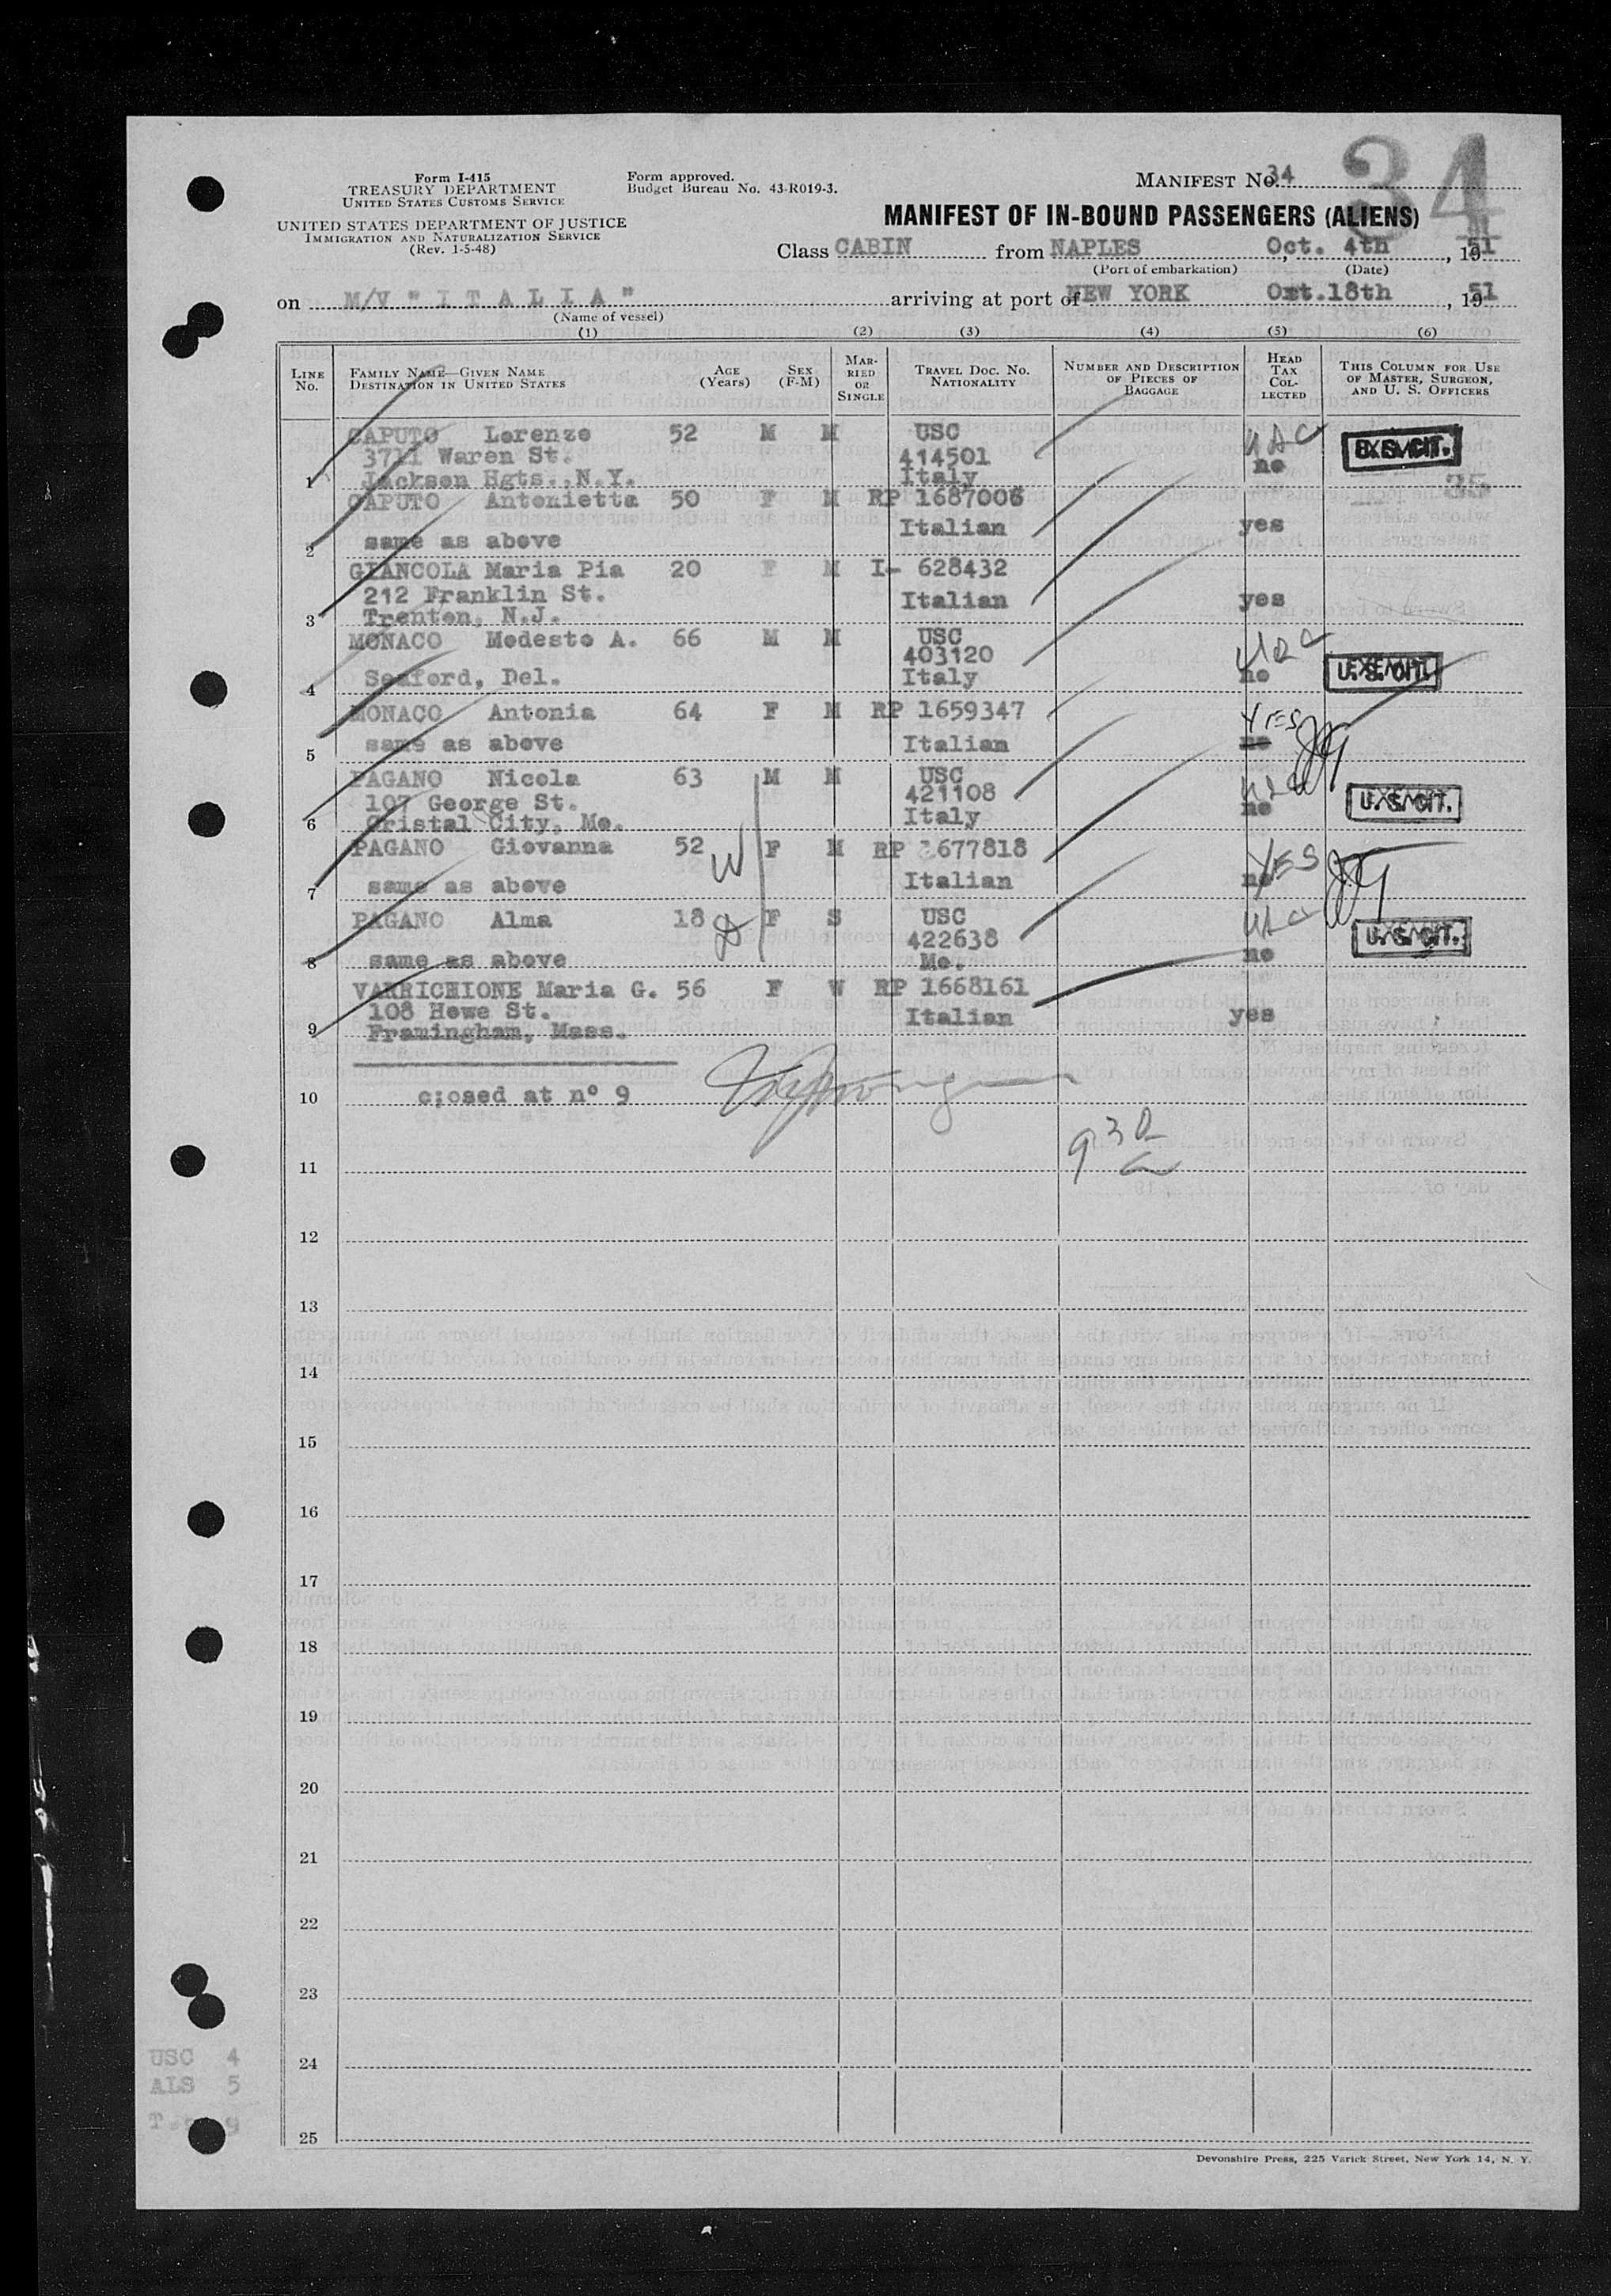 34
Form I-415
TREASURY DEPARTMENT
UNITED STATES CUSTOMS SERVICE
UNITED STATES DEPARTMENT OF JUSTICE
IMMIGRATION AND NATURALIZATION SERVICE
(Rev. 1-5-48)
Form approved.
Budget Bureau No. 43-R019-3.
MANIFEST No. 34
MANIFEST OF IN-BOUND PASSENGERS (ALIENS)
Class CABIN from NAPLES, Oct. 4th, 1951
(Port of embarkation) (Date)
on M/V "ITALIA" arriving at port of NEW YORK Oct.18th, 1951
(Name of vessel)
(1) (2) (3) (4) (5) (6)
LINE No. FAMILY NAME—GIVEN NAME DESTINATION IN UNITED STATES AGE (Years) SEX (F-M) MARRIED OR SINGLE TRAVEL DOC. NO. NATIONALITY NUMBER AND DESCRIPTION OF PIECES OF BAGGAGE HEAD TAX COLLECTED THIS COLUMN FOR USE OF MASTER, SURGEON, AND U. S. OFFICERS
CAPUTO Lorenzo 52 M M USC
3711 Waren St. 414501
1 Jackson Hgts.,N.Y. Italy no
35
CAPUTO Antonietta 50 F M RP 1687006
Italian yes
2 same as above
GIANCOLA Maria Pia 20 F M I- 628432
212 Franklin St. Italian yes
3 Trenton, N.J.
MONACO Modesto A. 66 M M USC
403120
4 Seaford, Del. Italy no U.S. CIT.
MONACO Antonia 64 F M RP 1659347 YES
5 same as above Italian no
PAGANO Nicola 63 M M USC
107 George St. 421108 U.S. CIT.
6 Cristal City, Mo. Italy no
PAGANO Giovanna 52 W F M RP 1677818 YES
7 same as above Italian no
PAGANO Alma 18 F S USC
422638 U.S. CIT.
8 same as above Mo. no
VARRICHIONE Maria G. 56 F W RP 1668161
108 Howe St. Italian yes
9 Framingham, Mass.
10 c;osed at n° 9
11
12
13
14
15
16
17
18
19
20
21
22
23
24
25
USC 4
ALS 5
T. 9
Devonshire Press, 225 Varick Street, New York 14, N. Y.